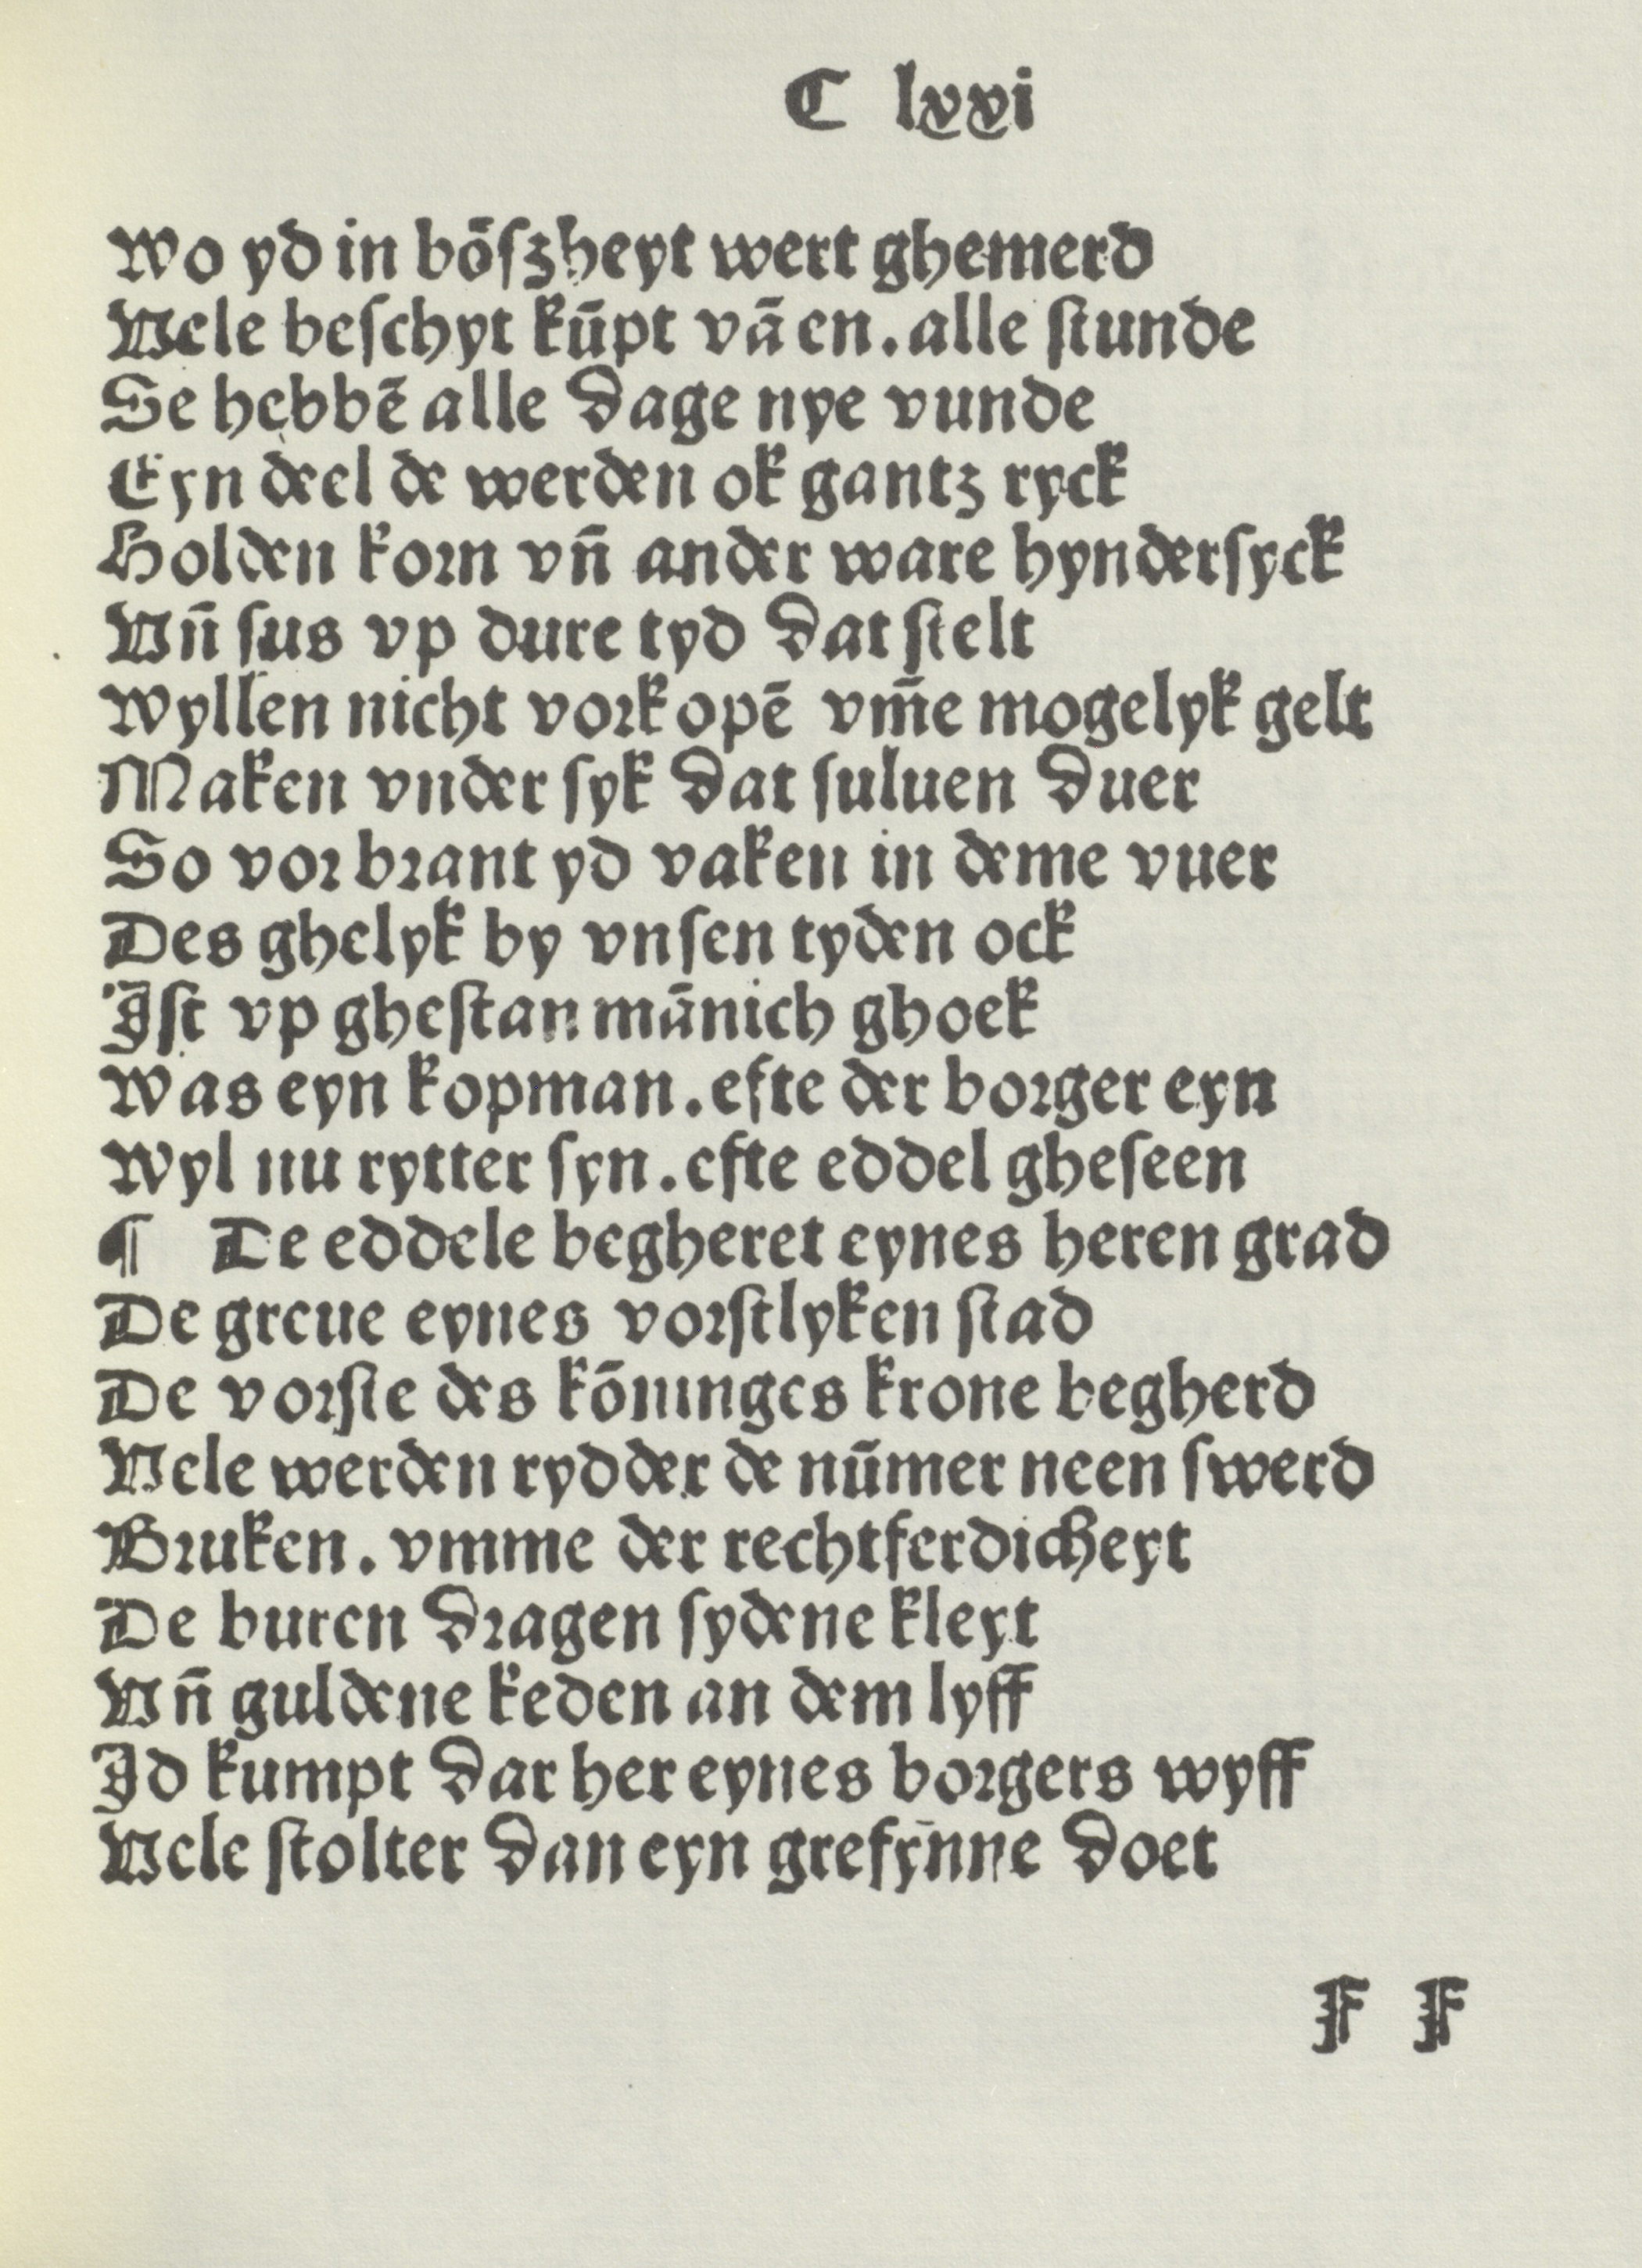 C lxxi
Wo yd in bōſzheyt wert ghemerd
Vele beſchyt kūpt vā en. alle ſtunde
Se hebbē alle dage nye vunde
Eyn deel de werden ok gantz ryck
Holden korn vn̄ ander ware hynderſyck
Vn̄ ſus vp dure tyd dat ſtelt
Wyllen nicht vorkopē vm̄e mogelyk gelt
Maken vnder ſyk dat ſuluen duer
So vorbrant yd vaken in deme vuer
Des ghelyk by vnſen tyden ock
Iſt vp gheſtan mānich ghoek
Was eyn kopman. efte der borger eyn
Wyl nu rytter ſyn. efte eddel gheſeen
¶ De eddele begheret eynes heren grad
De greue eynes vorſtlyken ſtad
De vorſte des kōninges krone begherd
Vele werden rydder de nūmer neen ſwerd
Bruken. vmme der rechtferdicheyt
De buren dragen ſydene kleyt
Vn̄ guldene keden an dem lyff
Id kumpt dar her eynes borgers wyff
Vele ſtolter dan eyn grefȳnne doet
F F